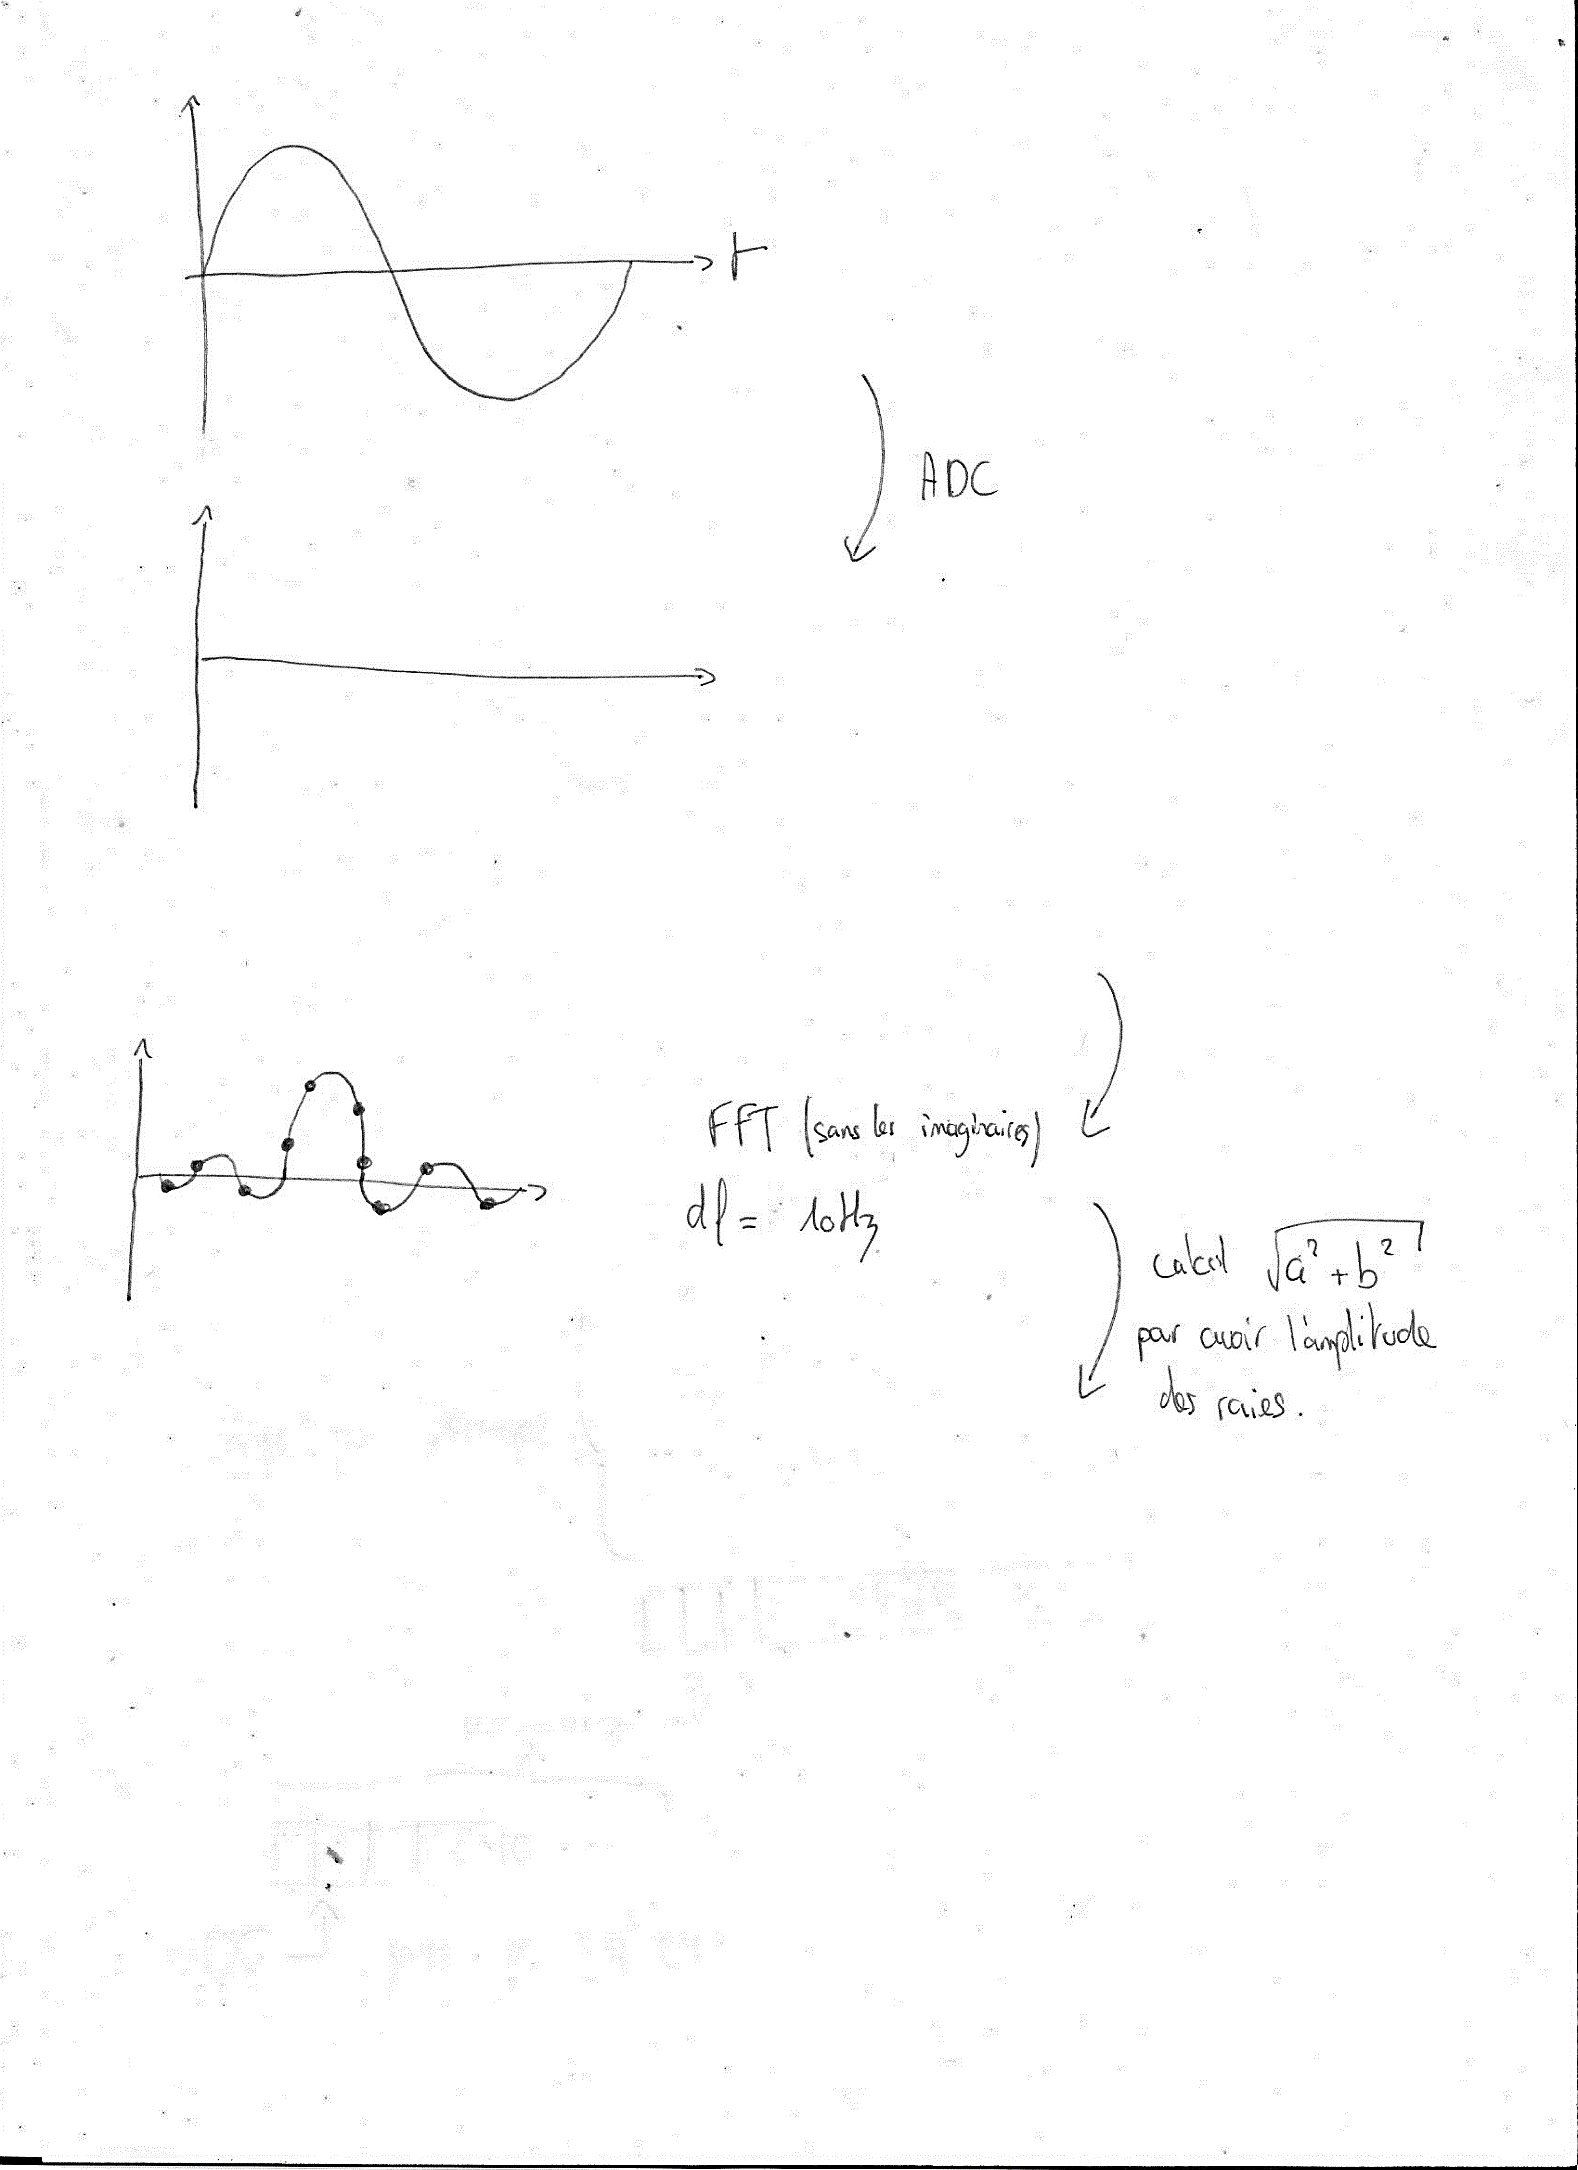 t
ADC
FFT (sans les imaginaires)
df = 10Hz
calcul √a²+b²
pour avoir l'amplitude
des raies.